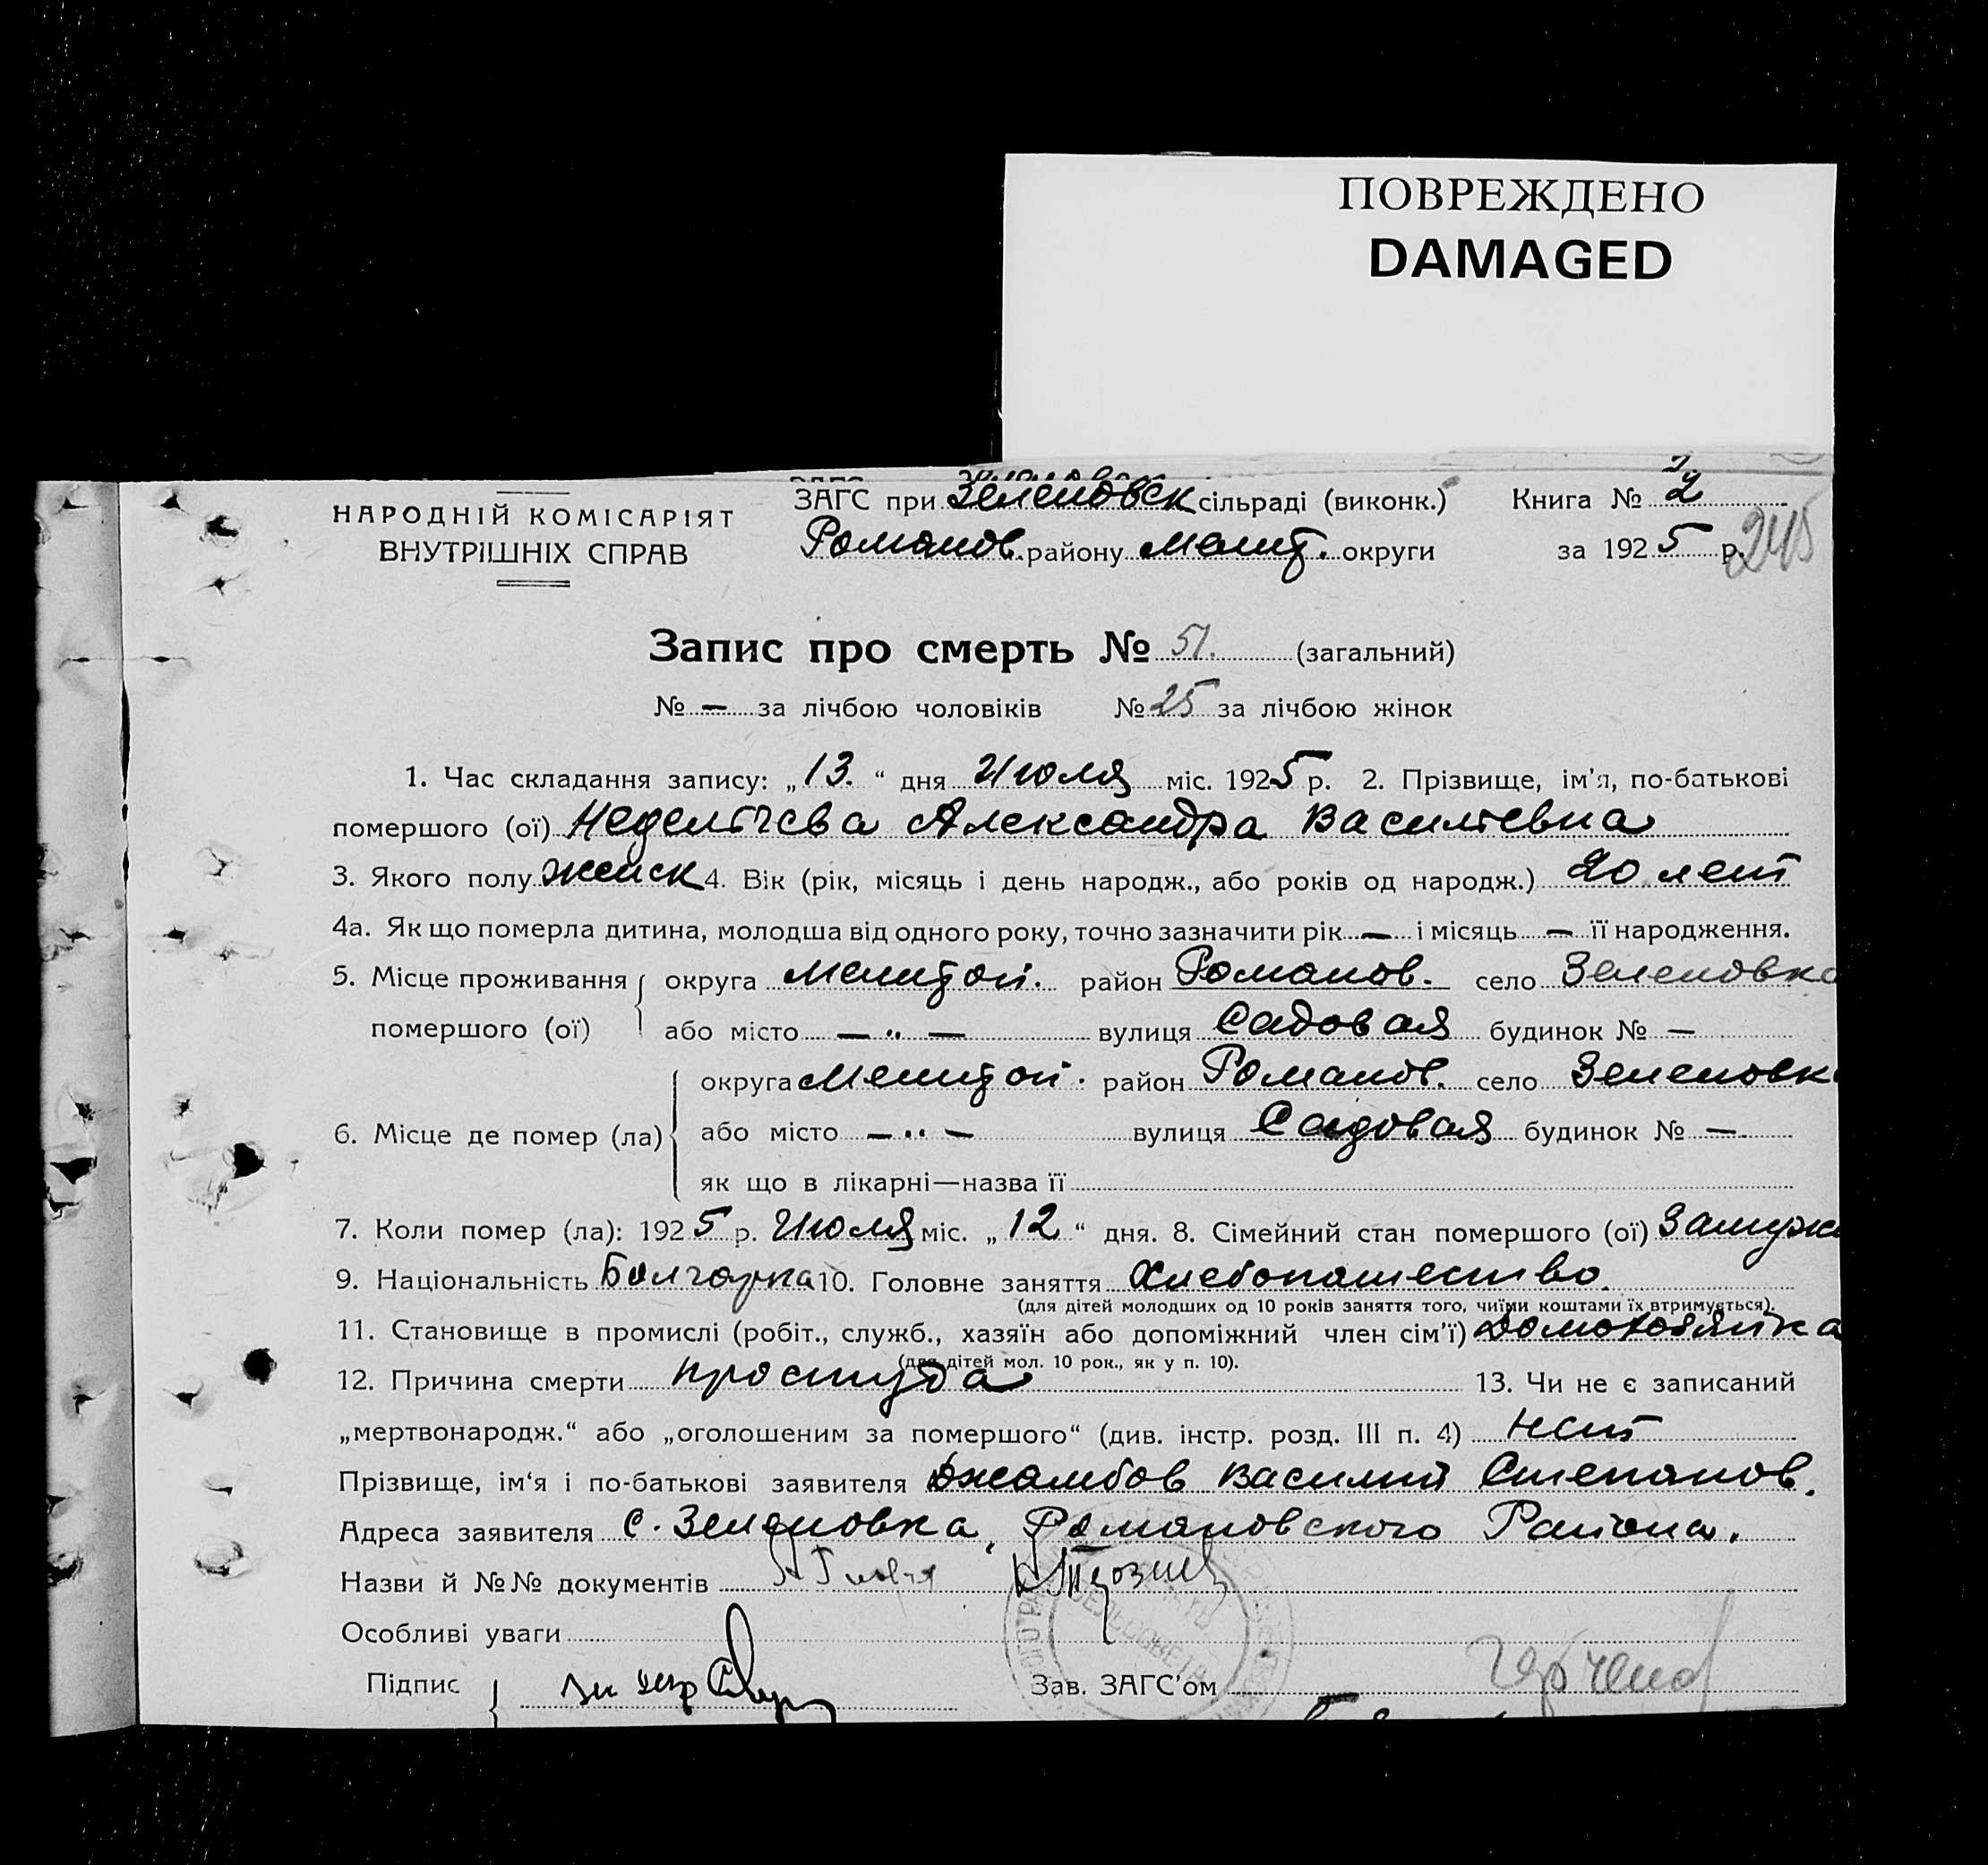 ПОВРЕЖДЕНО
DAMAGED
НАРОДНІЙ КОМІСАРІЯТ
ВНУТРІШНІХ СПРАВ
ЗАГС при Зеленовск сільраді (виконк.)
Романов. району Мелит. округи
Книга № 2
за 1925 р.
245
Запис про смерть № 51. (загальний)
№ — за лічбою чоловіків № 25 за лічбою жінок
1. Час складання запису: „13.“ дня Июля міс. 1925 р. 2. Прізвище, ім’я, по-батькові
помершого (ої) Неделчева Александра Василтевна
3. Якого полу женск 4. Вік (рік, місяць і день народж., або років од народж.) 20 лет
4а. Як що померла дитина, молодша від одного року, точно зазначити рік — і місяць — її народження.
5. Місце проживання округа Мелитоп. район Романов. село Зеленовка
помершого (ої) або місто — „ — вулиця Садовая будинок № —
округа Мелитоп. район Романов. село Зеленовк
6. Місце де помер (ла) або місто — „ — вулиця Садовая будинок № —
як що в лікарні—назва її
7. Коли помер (ла): 1925 р. Июля міс. „12“ дня. 8. Сімейний стан помершого (ої) Замужн
9. Національність Болгарка 10. Головне заняття Хлебопашество.
(для дітей молодших од 10 років заняття того, чиїми коштами їх втримується).
11. Становище в промислі (робіт., служб., хазяїн або допоміжний член сім’ї) Домохозяйка
(для дітей мол. 10 рок., як у п. 10).
12. Причина смерти простуда 13. Чи не є записаний
„мертвонародж.“ або „оголошеним за помершого“ (див. інстр. розд. III п. 4) нет
Прізвище, ім‘я і по-батькові заявителя Джамбов Василий Степанов.
Адреса заявителя с. Зеленовка, Романовского Района.
Назви й №№ документів
Особливі уваги
Підпис
Зав. ЗАГС’ом